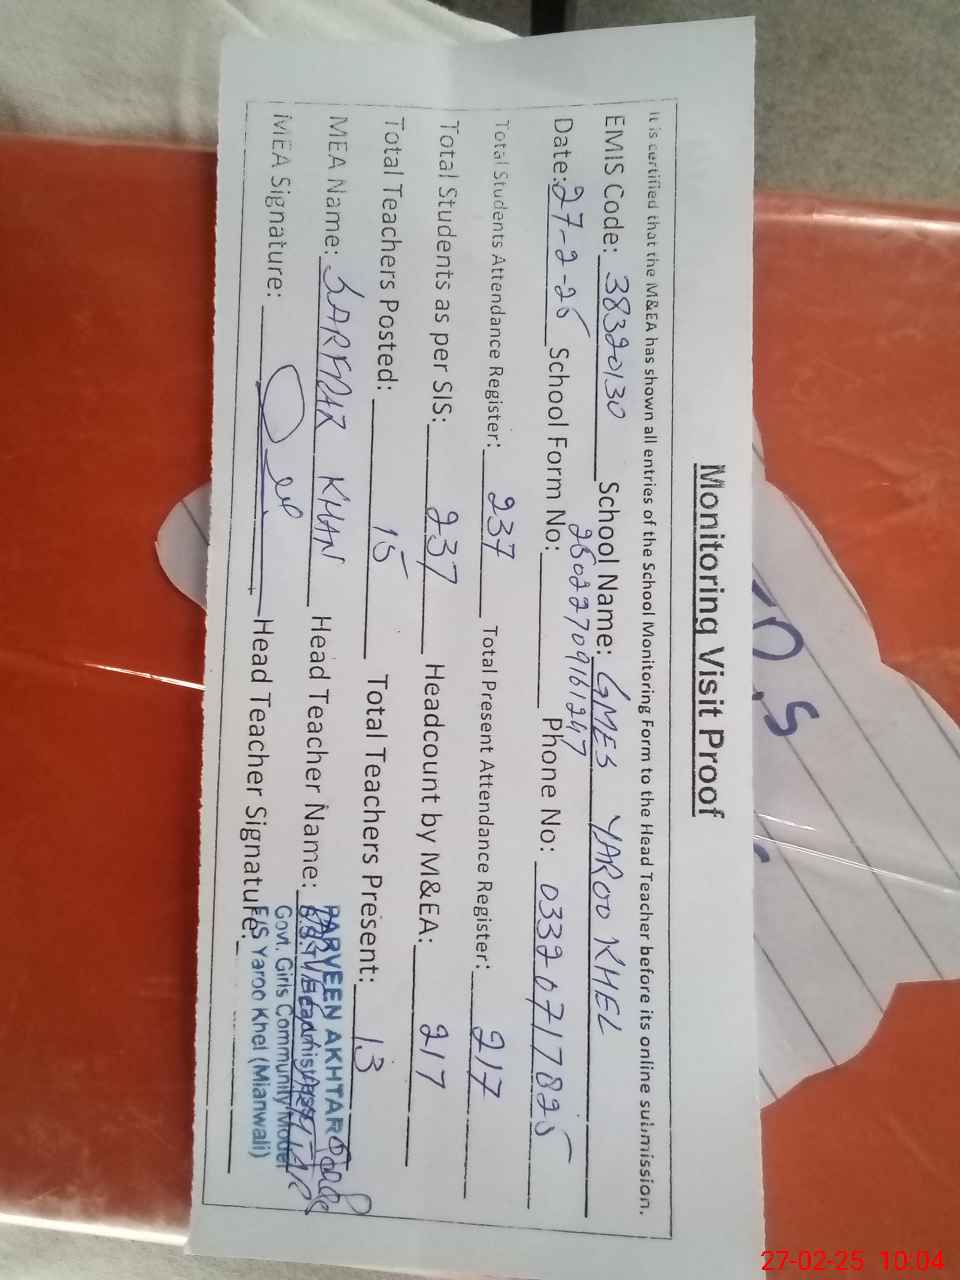 Monitoring Visit Proof
It is certified that the M&EA has shown all entries of the School Monitoring Form to the Head Teacher before its online submission.
EMIS Code: 38320130 School Name: GMES YAROO KHEL
Date: 27-2-25 School Form No: 25022709161247 Phone No: 03320717825
Total Students Attendance Register: 237 Total Present Attendance Register: 217
Total Students as per SIS: 237 Headcount by M&EA: 217
Total Teachers Posted: 15 Total Teachers Present: 13
MEA Name: SARFRAZ KHAN Head Teacher Name:
MEA Signature: Head Teacher Signature:
PARVEEN AKHTAR
Govt. Girls Community Model
E/S Yaroo Khel (Mianwali)
27-02-25 10:04